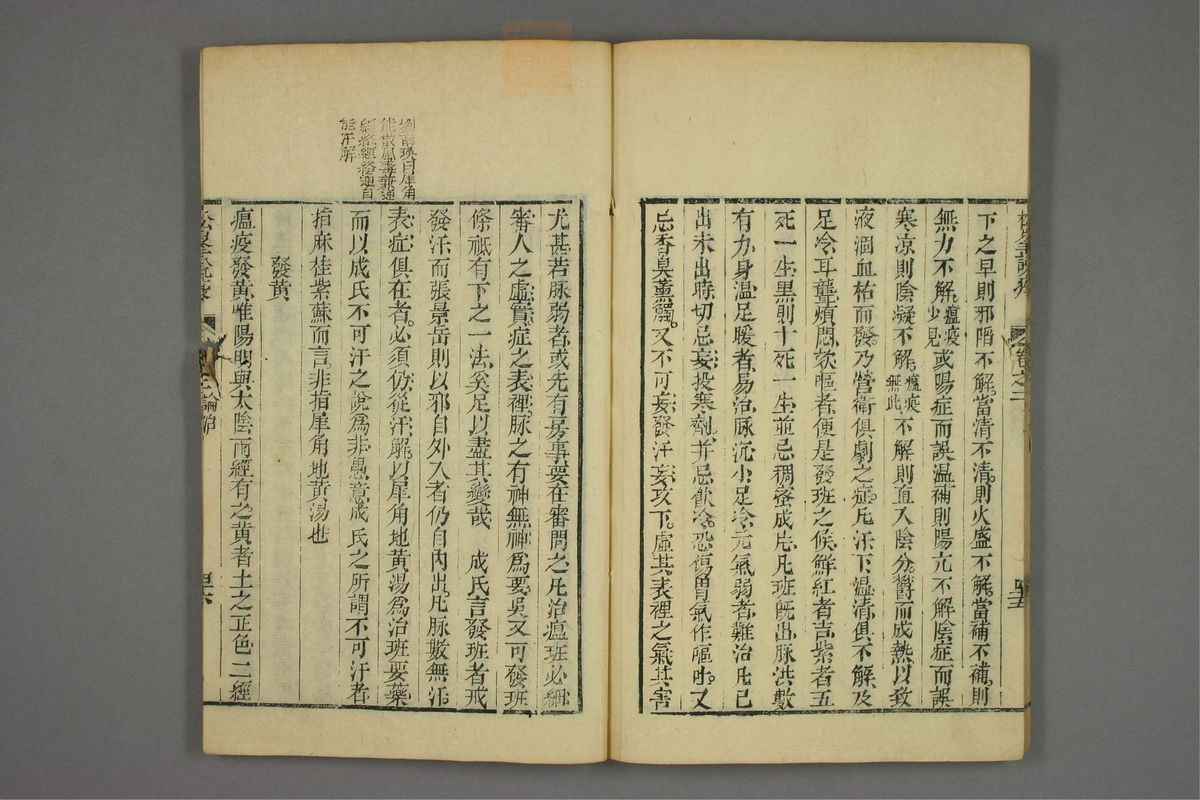 下之早則邪陷不解當清不清則火盛不解當補不補則
無力不解瘟疫少見或陽症而誤溫補則陽亢不解陰症而誤
寒凉則陰凝不解瘟疫無此不解則直入陰分鬱而成熱以致
液涸血枯而發乃營衛俱劇之症凡汗下溫清俱不解及
足冷耳聾煩悶欬嘔者便是發班之候鮮紅者吉紫者五
死一生黑則十死一生並忌稠密成片凡班既出脉洪數
有力身溫足暖者易治脉沉小足冷元氣弱者難治凡已
出未出時切忌妄投寒劑并忌飲冷恐傷胃氣作嘔吐又
忌香臭薰觸又不可妄發汗妄攻下虛其表裡之氣其害
卷之二
四十五
尤甚若脉弱者或先有房事要在審問之凡治瘟班必細
審人之虛實症之表裡脉之有神無神爲要吳又可發班
條祗有下之一法奚足以盡其變哉 成氏言發班者戒
發汗而張景岳則以邪自外入者仍自內出凡脉數無汗
表症俱在者必須仍從汗解以犀角地黃湯爲治班要藥
而以成氏不可汗之說爲非愚意成氏之所謂不可汗者
指麻桂紫蘇而言非指犀角地黃湯也
發黃
瘟疫發黃唯陽明與太陰兩經有之黃者土之正色二經
論治
四十六
曰犀角
能散風毒兼通
經絡經絡通自
能汗解